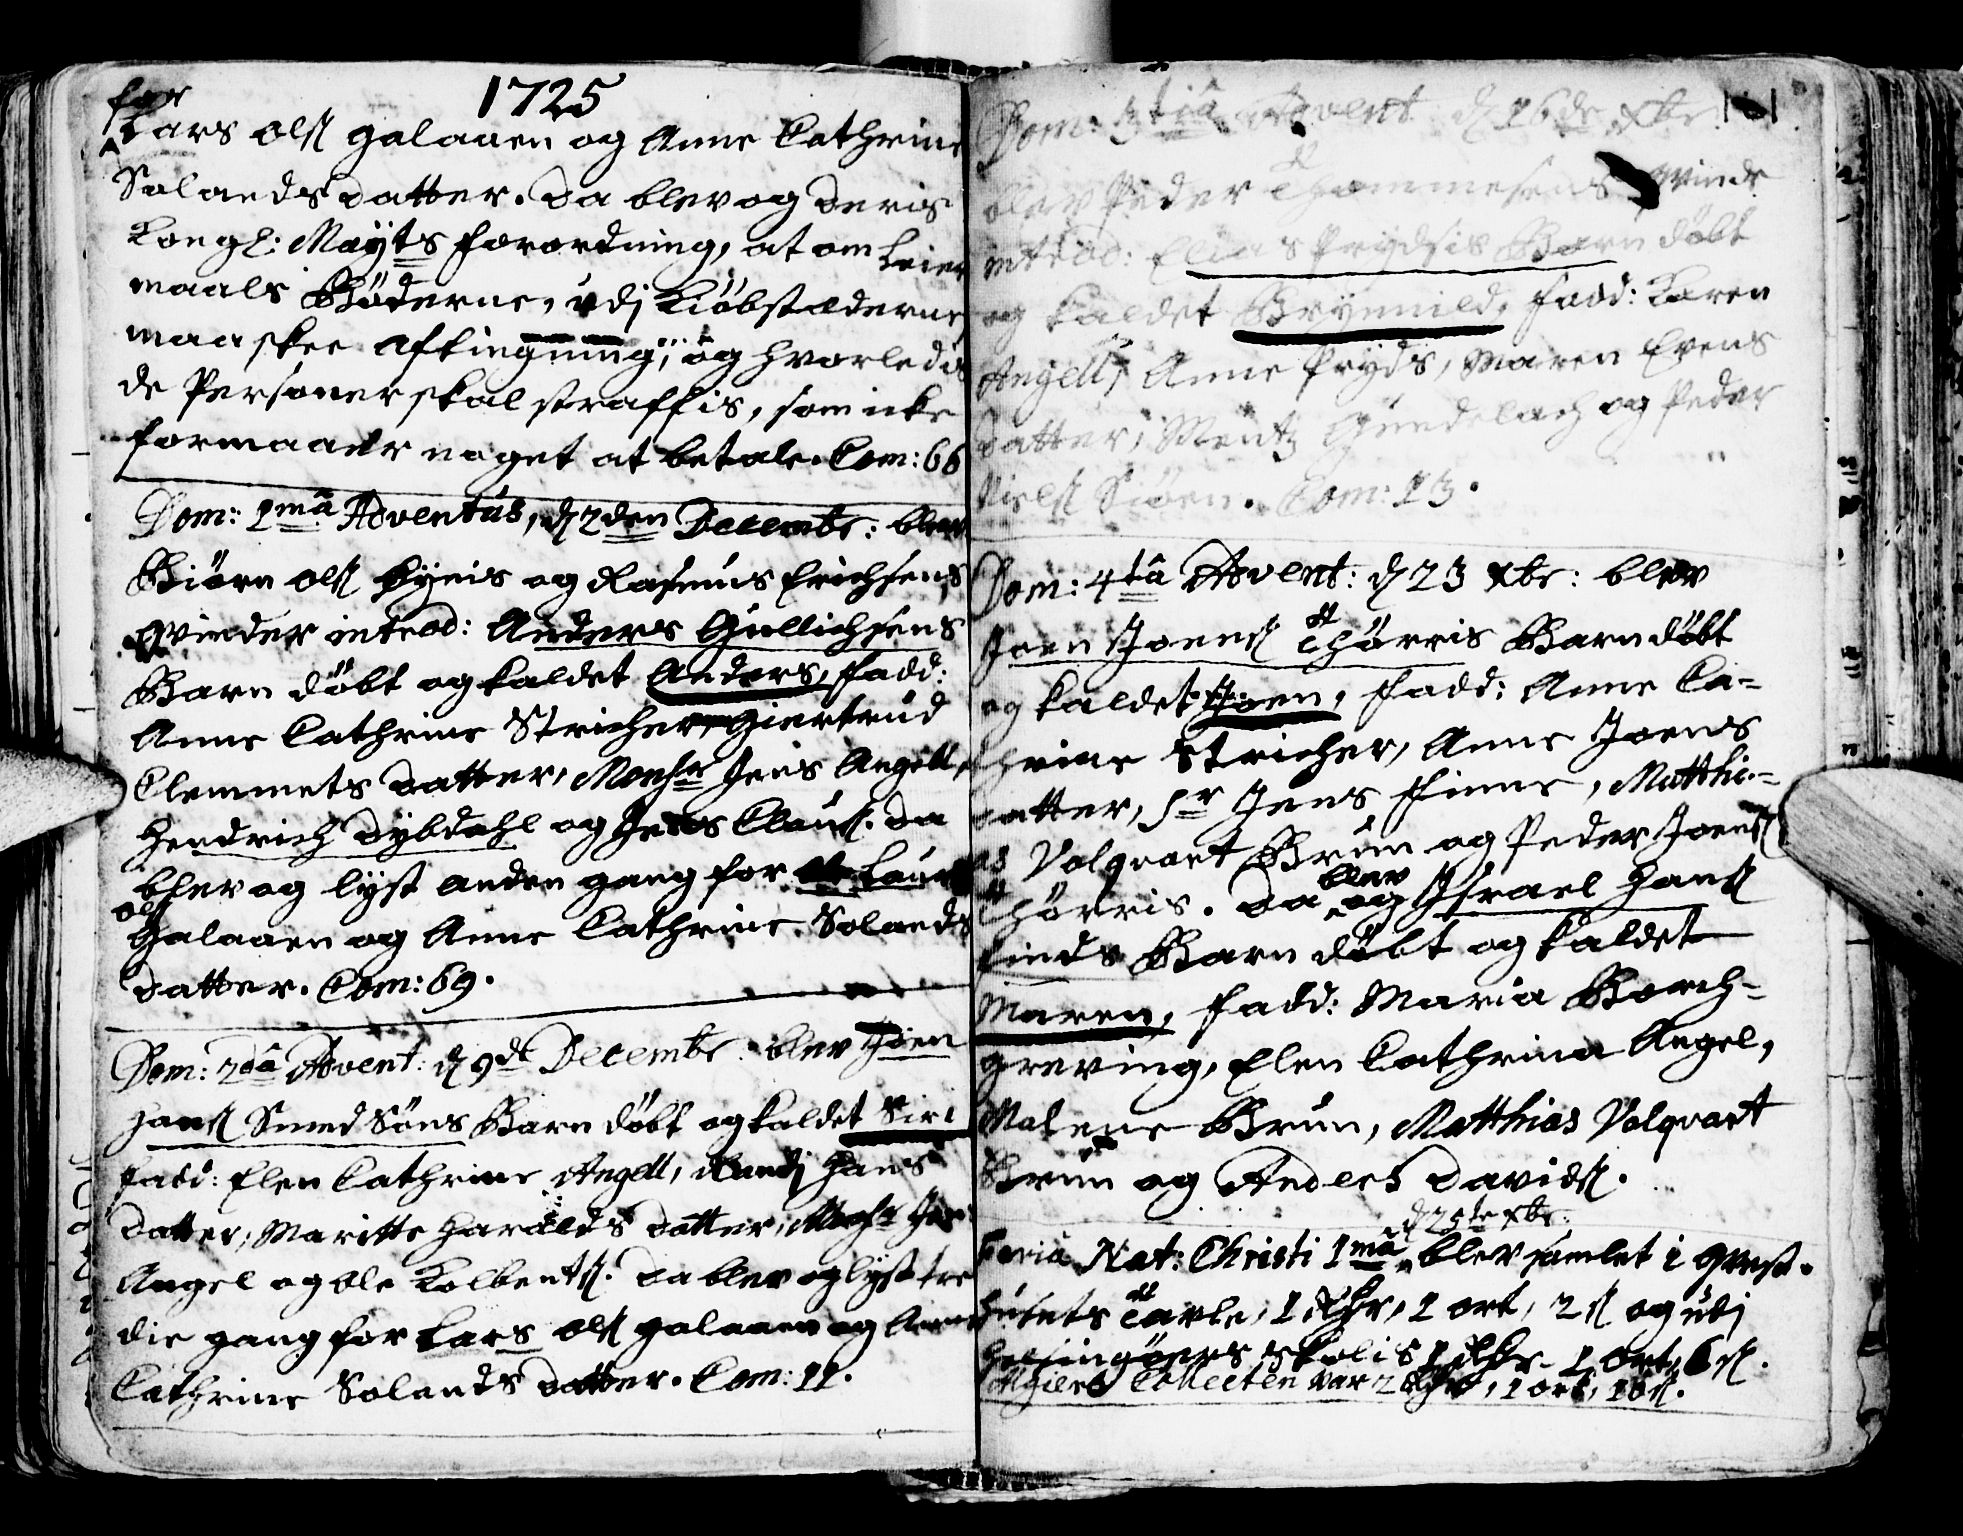 1725
for
Lars Olsß Galaaen og Anne Cathrine
Solands datter. Da blev og Deris
Kongl: Mayts forordning, at om Leier
maals Bøderne, udj Kiøbstæderne
maa skee aftingning, og hvorledis
de Personer skal straffis, som icke
formaaer noget at betale. Com: 66
Dom: 1mâ Adventûs, d 2den Decembr: blev
Biørn Olsß Byeis og Rasmus Erichsens
Qvinder introd: Anders Gullichsens
Barn døbt og kaldet Anders, fadd:
Anne Cathrine Stricher, Giertrud
Clemmets datter, Monsr Jens Angell,
Hendrich Dybdahl og Jens Claus. Da
blev og lyst anden gang for Laurs
Olsß
Galaaen og Anne Cathrine Solands
datter. Com: 69.
Dom: 2dâ Advent: d 9de Decembr: blev Joen
Hansß Smed Søns Barn døbt og kaldet Siri
fadd: Elen Cathrine Angell, Randj Hans
datter, Maritte Haralds datter, Monsr Jens
Angel og Ole Kolbentsß. Da blev og lyst tre
die gang for Lars Olsß Galaaen og Anne
Cathrine Solands datter. Com: 11.
Dom: 3tiâ Advent d 16de xbr
blev Peder Thommesens Qvinde
introd: Elias Prydsis Barn døbt
og kaldet Brynnild, fadd: Karen
Angell, Anne Pryds, Maren Evens
datter, Mentz Gundelach og Peder
Nielsß Siøen. Com: 13.
Dom: 4tâ Advent: d 23 xbr: blev
Joen Joensß Thørris Barn døbt
og kaldet Joen, fadd: Anne Ca-
thrine Stricher, Anne Joens
datter, Sr Jens Finne, Matthi-
as Volqvart Brun og Peder Joensß
Thørris. Da blev og Israel Hansß
Finds Barn døbt og kaldet
Maren, fadd: Maria Borch-
greving, Elen Cathrina Angel,
Malene Brun, Matthias Volqvart
Brun og Anders Davidsß.
d 25te xbr:
Feriâ Nat: Christi 1mâ blev samlet i Qvest-
husets Tavle, 1 Rdr, 1 ort, 2 ß og udj
Helsingøers skolis 1 Rdr 1 ort, 6 ß.
Collecten var 2 Rdr, 1 ort, 10 ß.